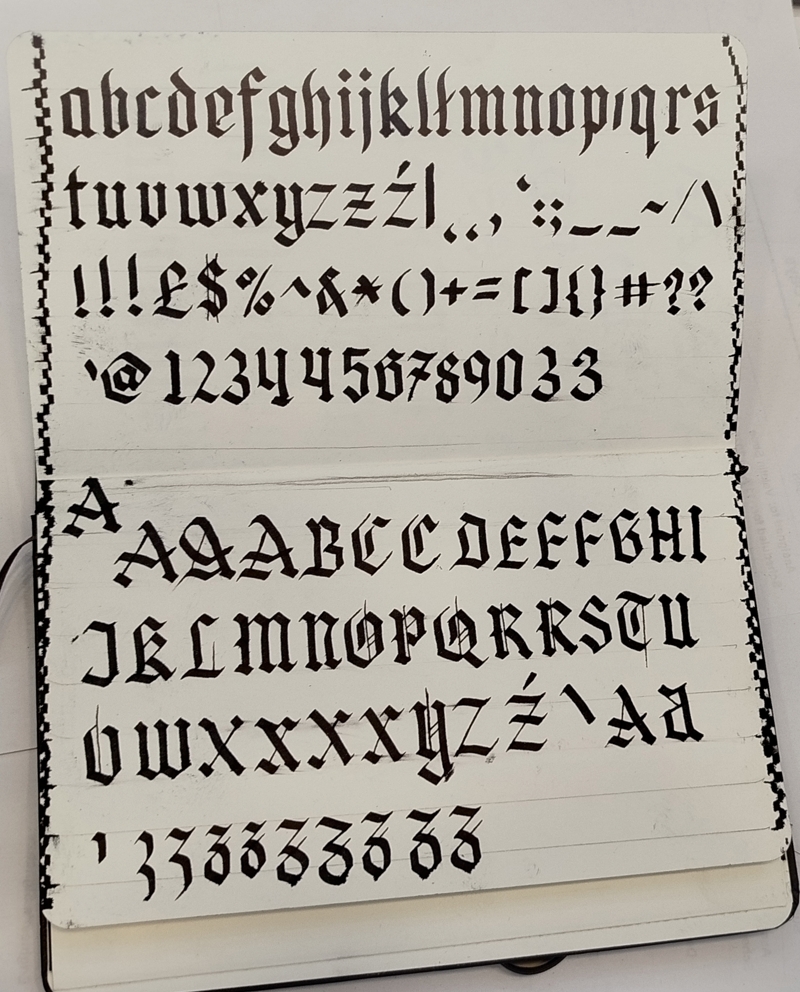 abcdefghijklłmnopqrs
tuvwxyzzƶź|,,,‘:;__~/\
!!!£$%^&*()+=[]{}#??
'@1234456789033
A
AAABCCDEEFGHI
JKLMNOPQRRSTU
VWXXXXYZŹ\Aa
'3333333333